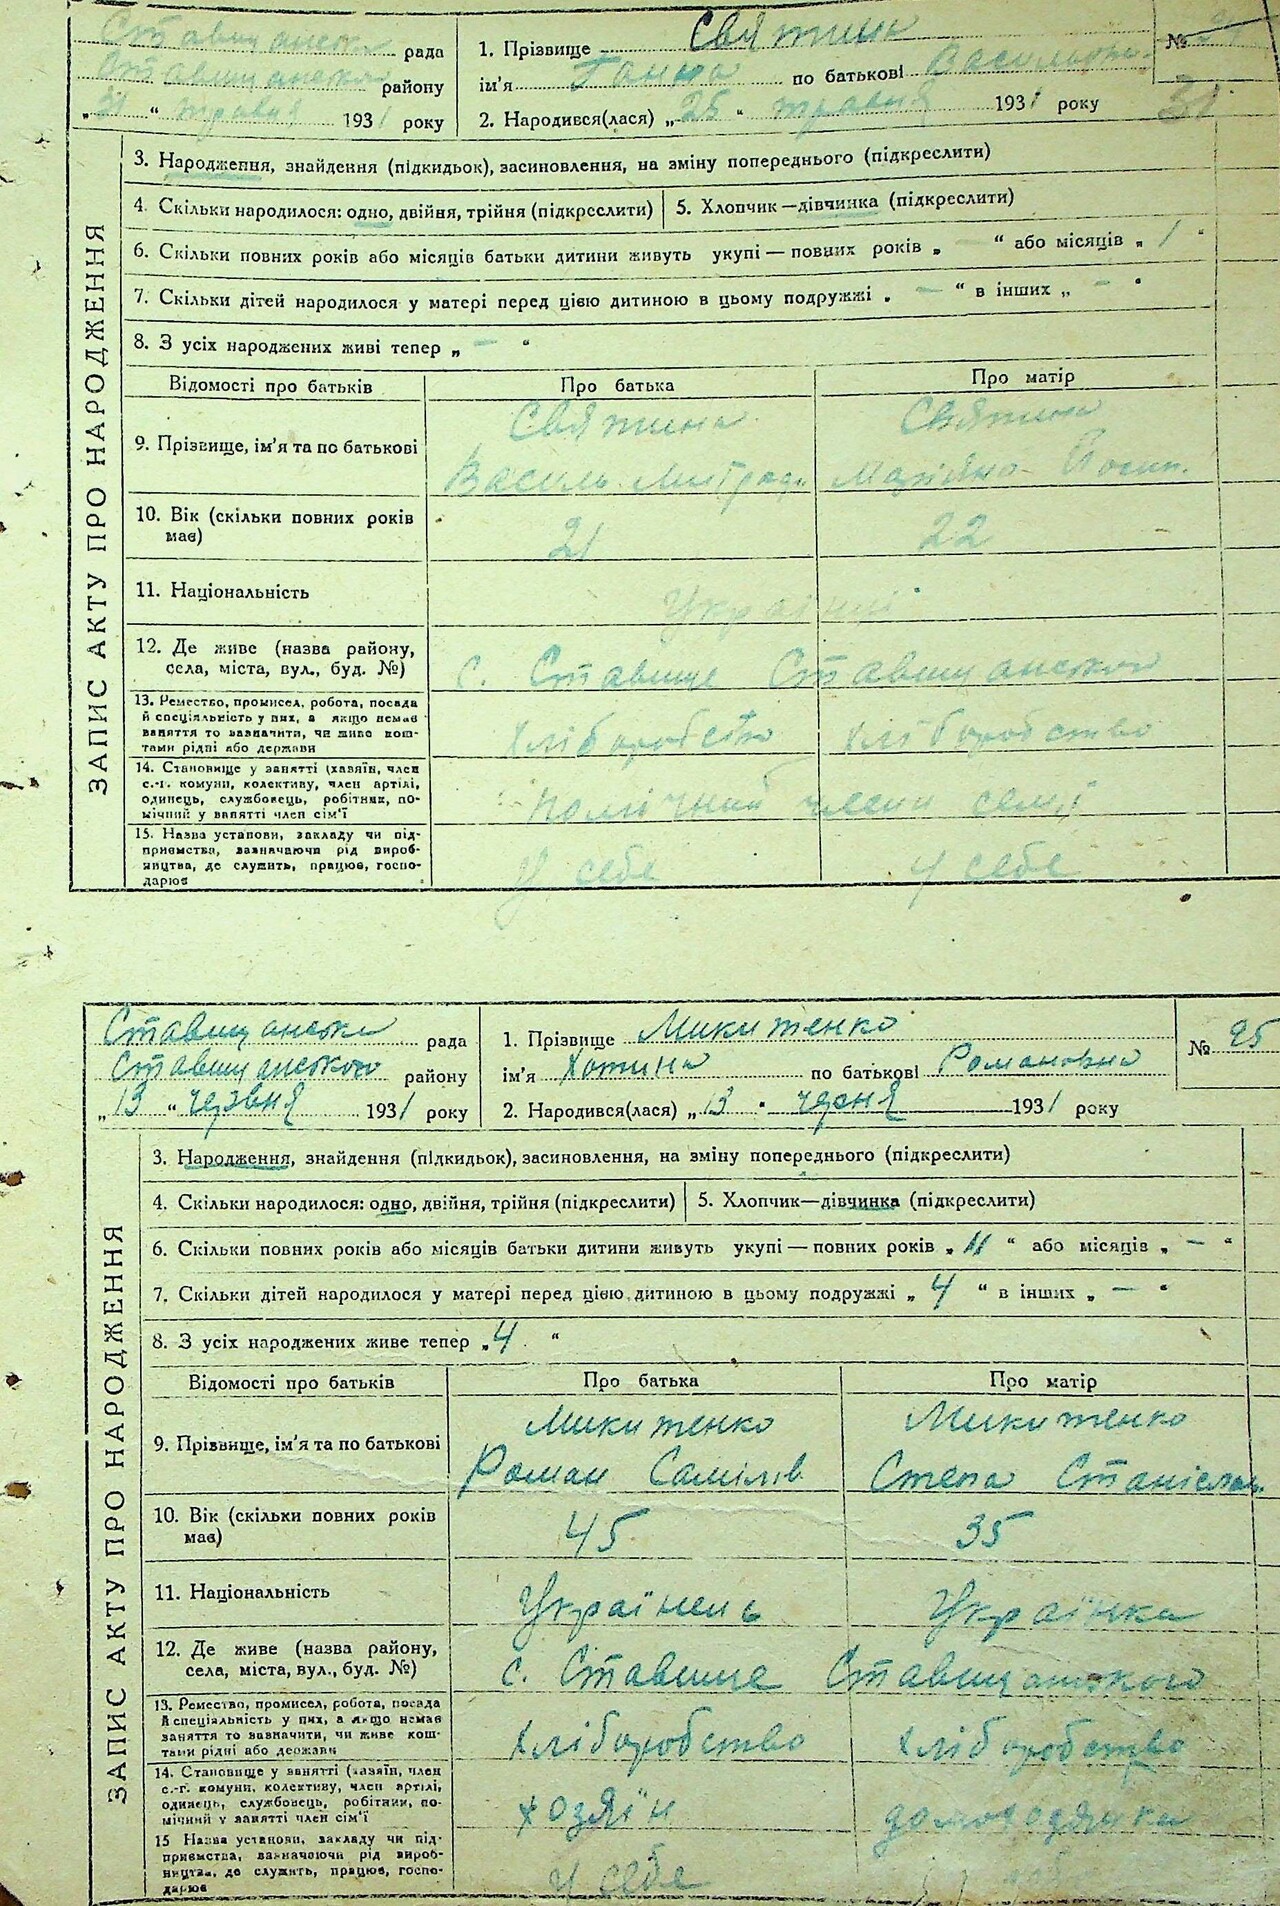 Ставищанська рада
Ставищанского району
„ 31 “ травня 1931 року
1. Прізвище Святина
ім'я Ганна по батькові Василівна
2. Народився(лася) „ 25 “ травня 1931 року
№
31
ЗАПИС АКТУ ПРО НАРОДЖЕННЯ
3. Народження, знайдення (підкидьок), засиновлення, на зміну попереднього (підкреслити)
4. Скільки народилося: одно, двійня, трійня (підкреслити)
5. Хлопчик—дівчинка (підкреслити)
6. Скільки повних років або місяців батьки дитини живуть укупі — повних років „ — “ або місяців „ 1 “
7. Скільки дітей народилося у матері перед цією дитиною в цьому подружжі „ — “ в інших „ — “
8. З усіх народжених живі тепер „ — “
Відомості про батьків
Про батька
Про матір
9. Прізвище, ім'я та по батькові
Святина
Василь
Святина
Маріяна
10. Вік (скільки повних років
має)
21
22
11. Національність
Українці
12. Де живе (назва району,
села, міста, вул., буд. №)
с. Ставище Ставищанского
13. Ремество, промисел, робота, посада
й спеціальність у них, а якщо немає
заняття то зазначити, чи живе кош-
тами рідні або держави
хліборобство
хліборобство
14. Становище у занятті (хазяїн, член
с.-г. комуни, колективу, член артілі,
одинець, службовець, робітник, по-
мічний у занятті член сім'ї
помічний члени семї
15. Назва установи, закладу чи під-
приємства, зазначаючи рід вироб-
ництва, де служить, працює, госпо-
дарює
У себе
У себе
Ставищанська рада
Ставищанского району
„ 13 “ червня 1931 року
1. Прізвище Микитенко
ім'я Хотина по батькові Романовна
2. Народився(лася) „ 13 “ черня 1931 року
№ 25
ЗАПИС АКТУ ПРО НАРОДЖЕННЯ
3. Народження, знайдення (підкидьок), засиновлення, на зміну попереднього (підкреслити)
4. Скільки народилося: одно, двійня, трійня (підкреслити)
5. Хлопчик—дівчинка (підкреслити)
6. Скільки повних років або місяців батьки дитини живуть укупі — повних років „ 11 “ або місяців „ — “
7. Скільки дітей народилося у матері перед цією дитиною в цьому подружжі „ 4 “ в інших „ — “
8. З усіх народжених живе тепер „ 4 “
Відомості про батьків
Про батька
Про матір
9. Прізвище, ім'я та по батькові
Микитенко
Роман Самілів
Микитенко
Степа Станіслав
10. Вік (скільки повних років
має)
45
35
11. Національність
Українець
Українка
12. Де живе (назва району,
села, міста, вул., буд. №)
с. Ставище Ставищанского
13. Ремество, промисел, робота, посада
й спеціальність у них, а якщо немає
заняття то зазначити, чи живе кош-
тами рідні або держави
хліборобство
хліборобство
14. Становище у занятті (хазяїн, член
с.-г. комуни, колективу, член артілі,
одинець, службовець, робітник, по-
мічний у занятті член сім'ї
хозяїн
15 Назва установи, закладу чи під-
приємства, зазначаючи рід вироб-
ництва, де служить, працює, госпо-
дарює
у себе